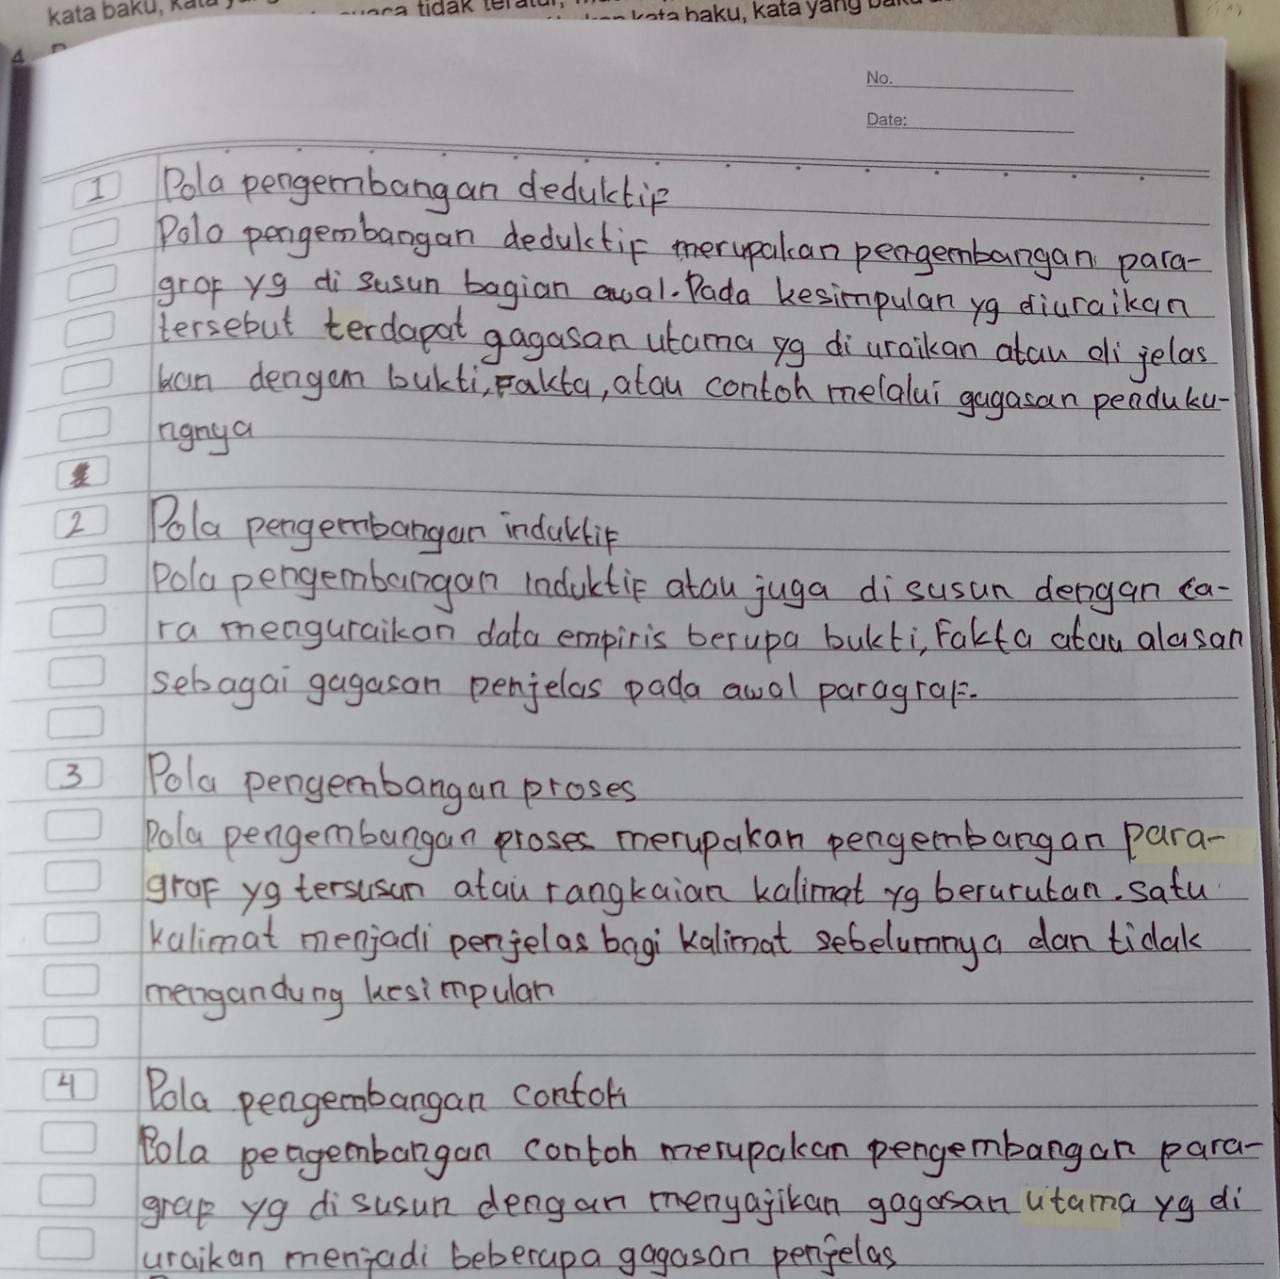 kata baku,
tidak
kata baku, kata yang baku
4
No.
Date:
1 Pola pengembangan deduktif
Pola pengembangan deduktif merupakan pengembangan para-
graf yg di susun bagian awal. Pada kesimpulan yg diuraikan
tersebut terdapat gagasan utama yg di uraikan atau di jelas
kan dengan bukti, Fakta, atau contoh melalui gagasan penduku-
ngnya
2 Pola pengembangan induktif
Pola pengembangan Induktif atau juga di susun dengan ca-
ra menguraikan data empiris berupa bukti, Fakta atau alasan
sebagai gagasan penjelas pada awal paragraf.
3 Pola pengembangan proses
Pola pengembangan proses merupakan pengembangan para-
graf yg tersusun atau rangkaian kalimat yg berurutan. satu
kalimat menjadi penjelas bagi kalimat sebelumnya dan tidak
mengandung kesimpulan
4 Pola pengembangan contoh
Pola pengembangan contoh merupakan pengembangan para-
graf yg di susun dengan menyajikan gagasan utama yg di
uraikan menjadi beberapa gagasan penjelas